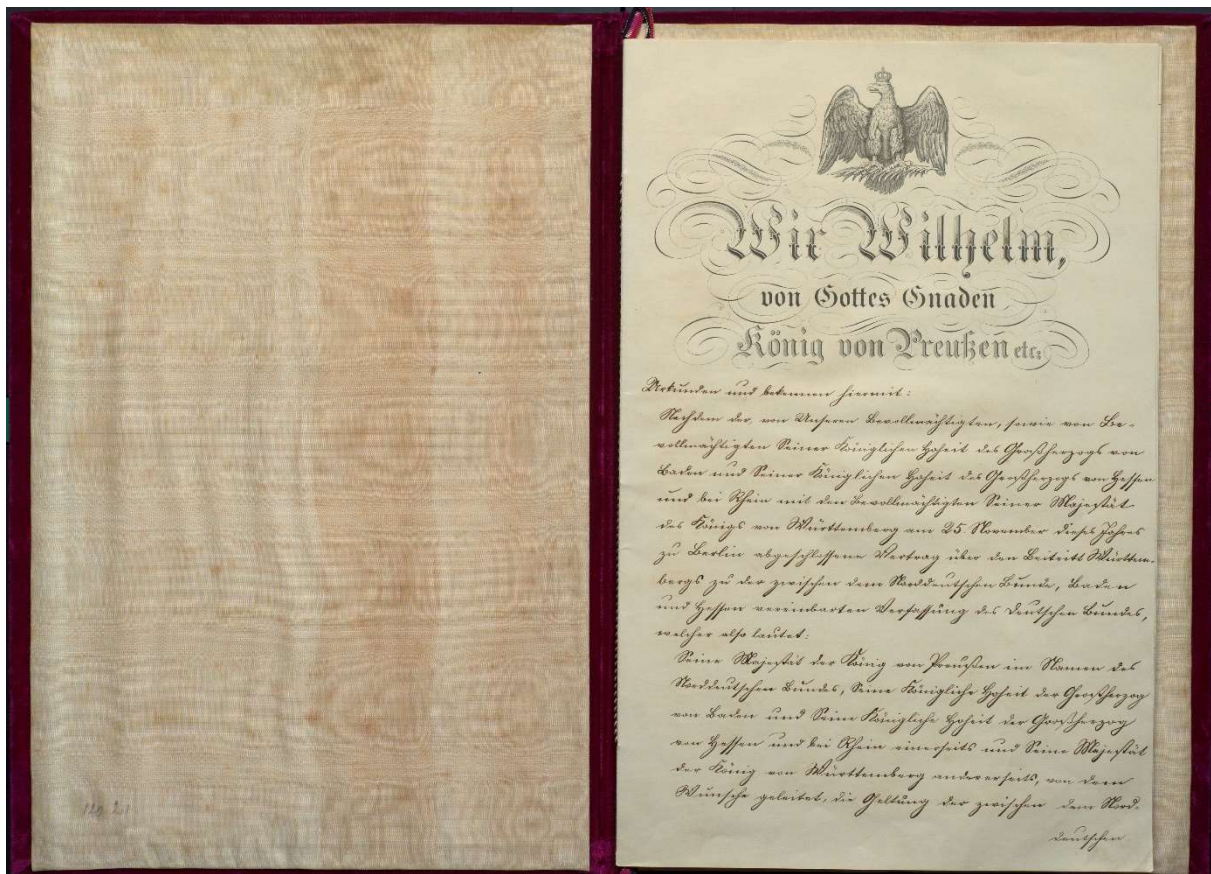 Wir Wilhelm,
von Gottes Gnaden
König von Preußen etc:
Urkunden und bekennen hiermit:
Nachdem der, von Unseren Bevollmächtigten, sowie von Be-
vollmächtigten Seiner Königlichen Hoheit des Großherzogs von
Baden und Seiner Königlichen Hoheit des Großherzogs von Hessen
und bei Rhein mit den Bevollmächtigten Seiner Majestät
des Königs von Württemberg am 25. November dieses Jahres
zu Berlin abgeschlossene Vertrag über den Beitritt Württem-
bergs zu der zwischen dem Norddeutschen Bunde, Baden
und Hessen vereinbarten Verfassung des Deutschen Bundes,
welcher also lautet:
Seine Majestät der König von Preußen im Namen des
Norddeutschen Bundes, Seine Königliche Hoheit der Großherzog
von Baden und Seine Königliche Hoheit der Großherzog
von Hessen und bei Rhein einerseits und Seine Majestät
der König von Württemberg andererseits, von dem
Wunsche geleitet, die Geltung der zwischen dem Nord-
deutschen